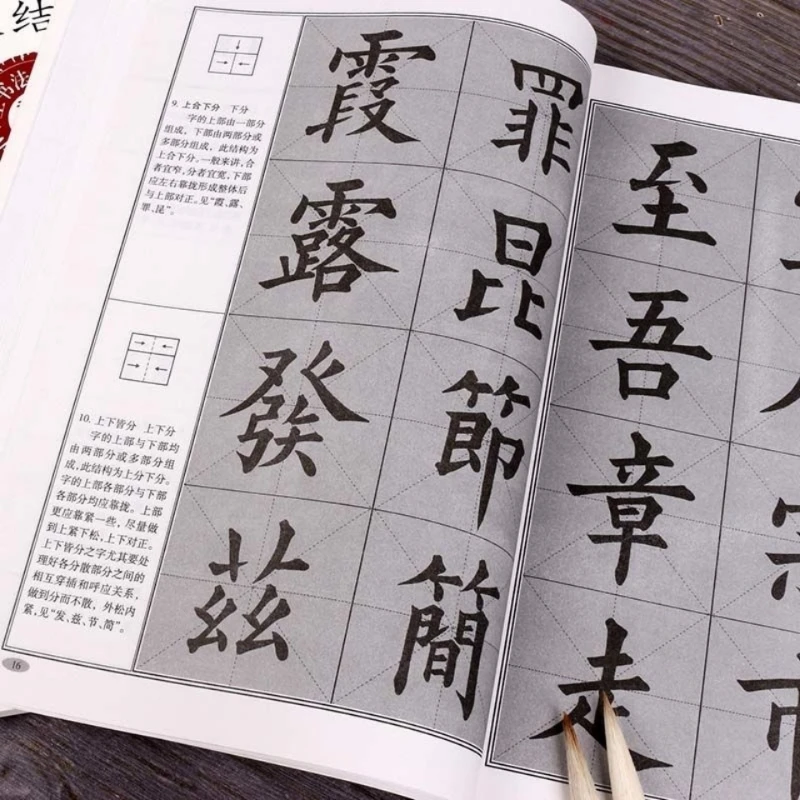 结
书法
9. 上合下分　下分
字的上部由一部分
组成，下部由两部分或
多部分组成，此结构为
上合下分。一般来讲，合
者宜窄，分者宜宽，下部
应左右靠拢形成整体后
与上部对正。见“霞、露、
罪、昆”。
10. 上下皆分　上下分
字的上部与下部均
由两部分或多部分组
成，此结构为上分下分。
字的上部各部分与下部
各部分均应靠拢。上部
更应靠紧一些，尽量做
到上紧下松，上下对正。
上下皆分之字尤其要处
理好各分散部分之间的
相互穿插和呼应关系，
做到分而不散，外松内
紧，见“发、兹、节、简”。
16
霞 罪
露 昆
發 節
茲 簡
至
吾
章
走